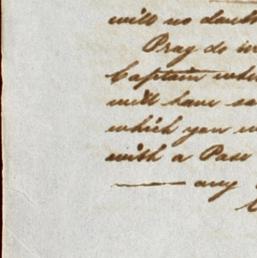 will no doubt
Pray do in
Captain whe
will have sa
which you w
with a Pass
——— any